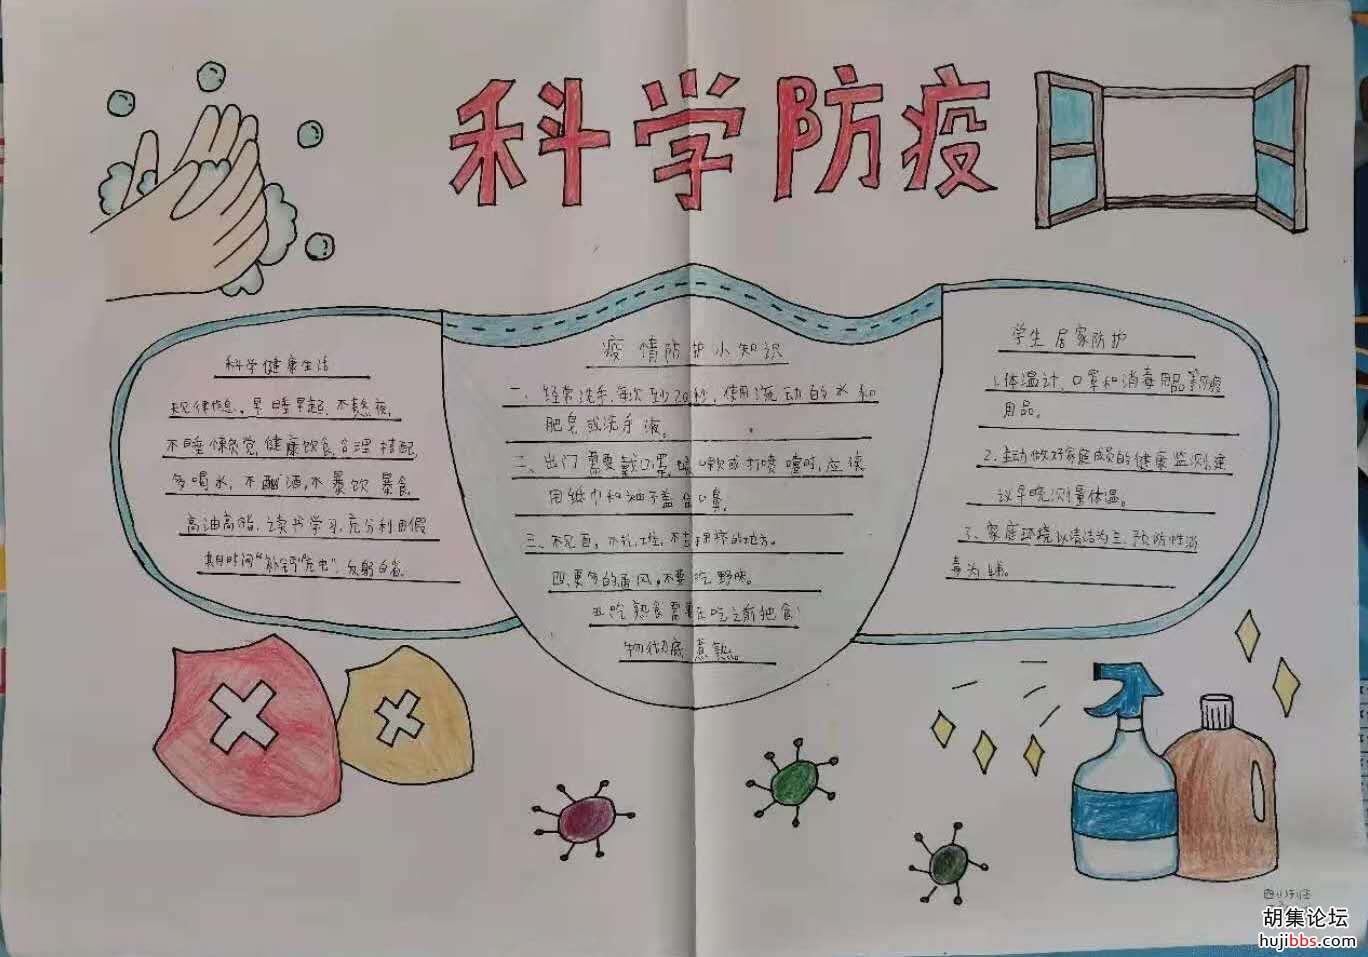 科学防疫
科学健康生活
规律作息、早睡早起、不熬夜、
不睡懒觉,健康饮食,合理搭配,
多喝水,不酗酒,不暴饮暴食,
高油高脂,读书学习,充分利用假
期时间"
疫情防护小知识
一、经常洗手,每次至少20秒,使用流动的水和
肥皂或洗手液。
二、出门需要戴口罩,咳嗽或打喷嚏时,应该
用纸巾和袖子盖住口鼻。
三、不见面,不扎堆,不去
四、更多的通风,不要吃野味。
五、吃熟食需要在吃之前把食
物彻底煮熟。
学生居家防护
1.体温计、口罩和消毒用品等防疫
用品。
2.主动做好家庭成员的健康监测,建
议早晚测量体温。
3、家庭环境以清洁为主,预防性消
毒为辅。
胡集论坛
hujibbs.com